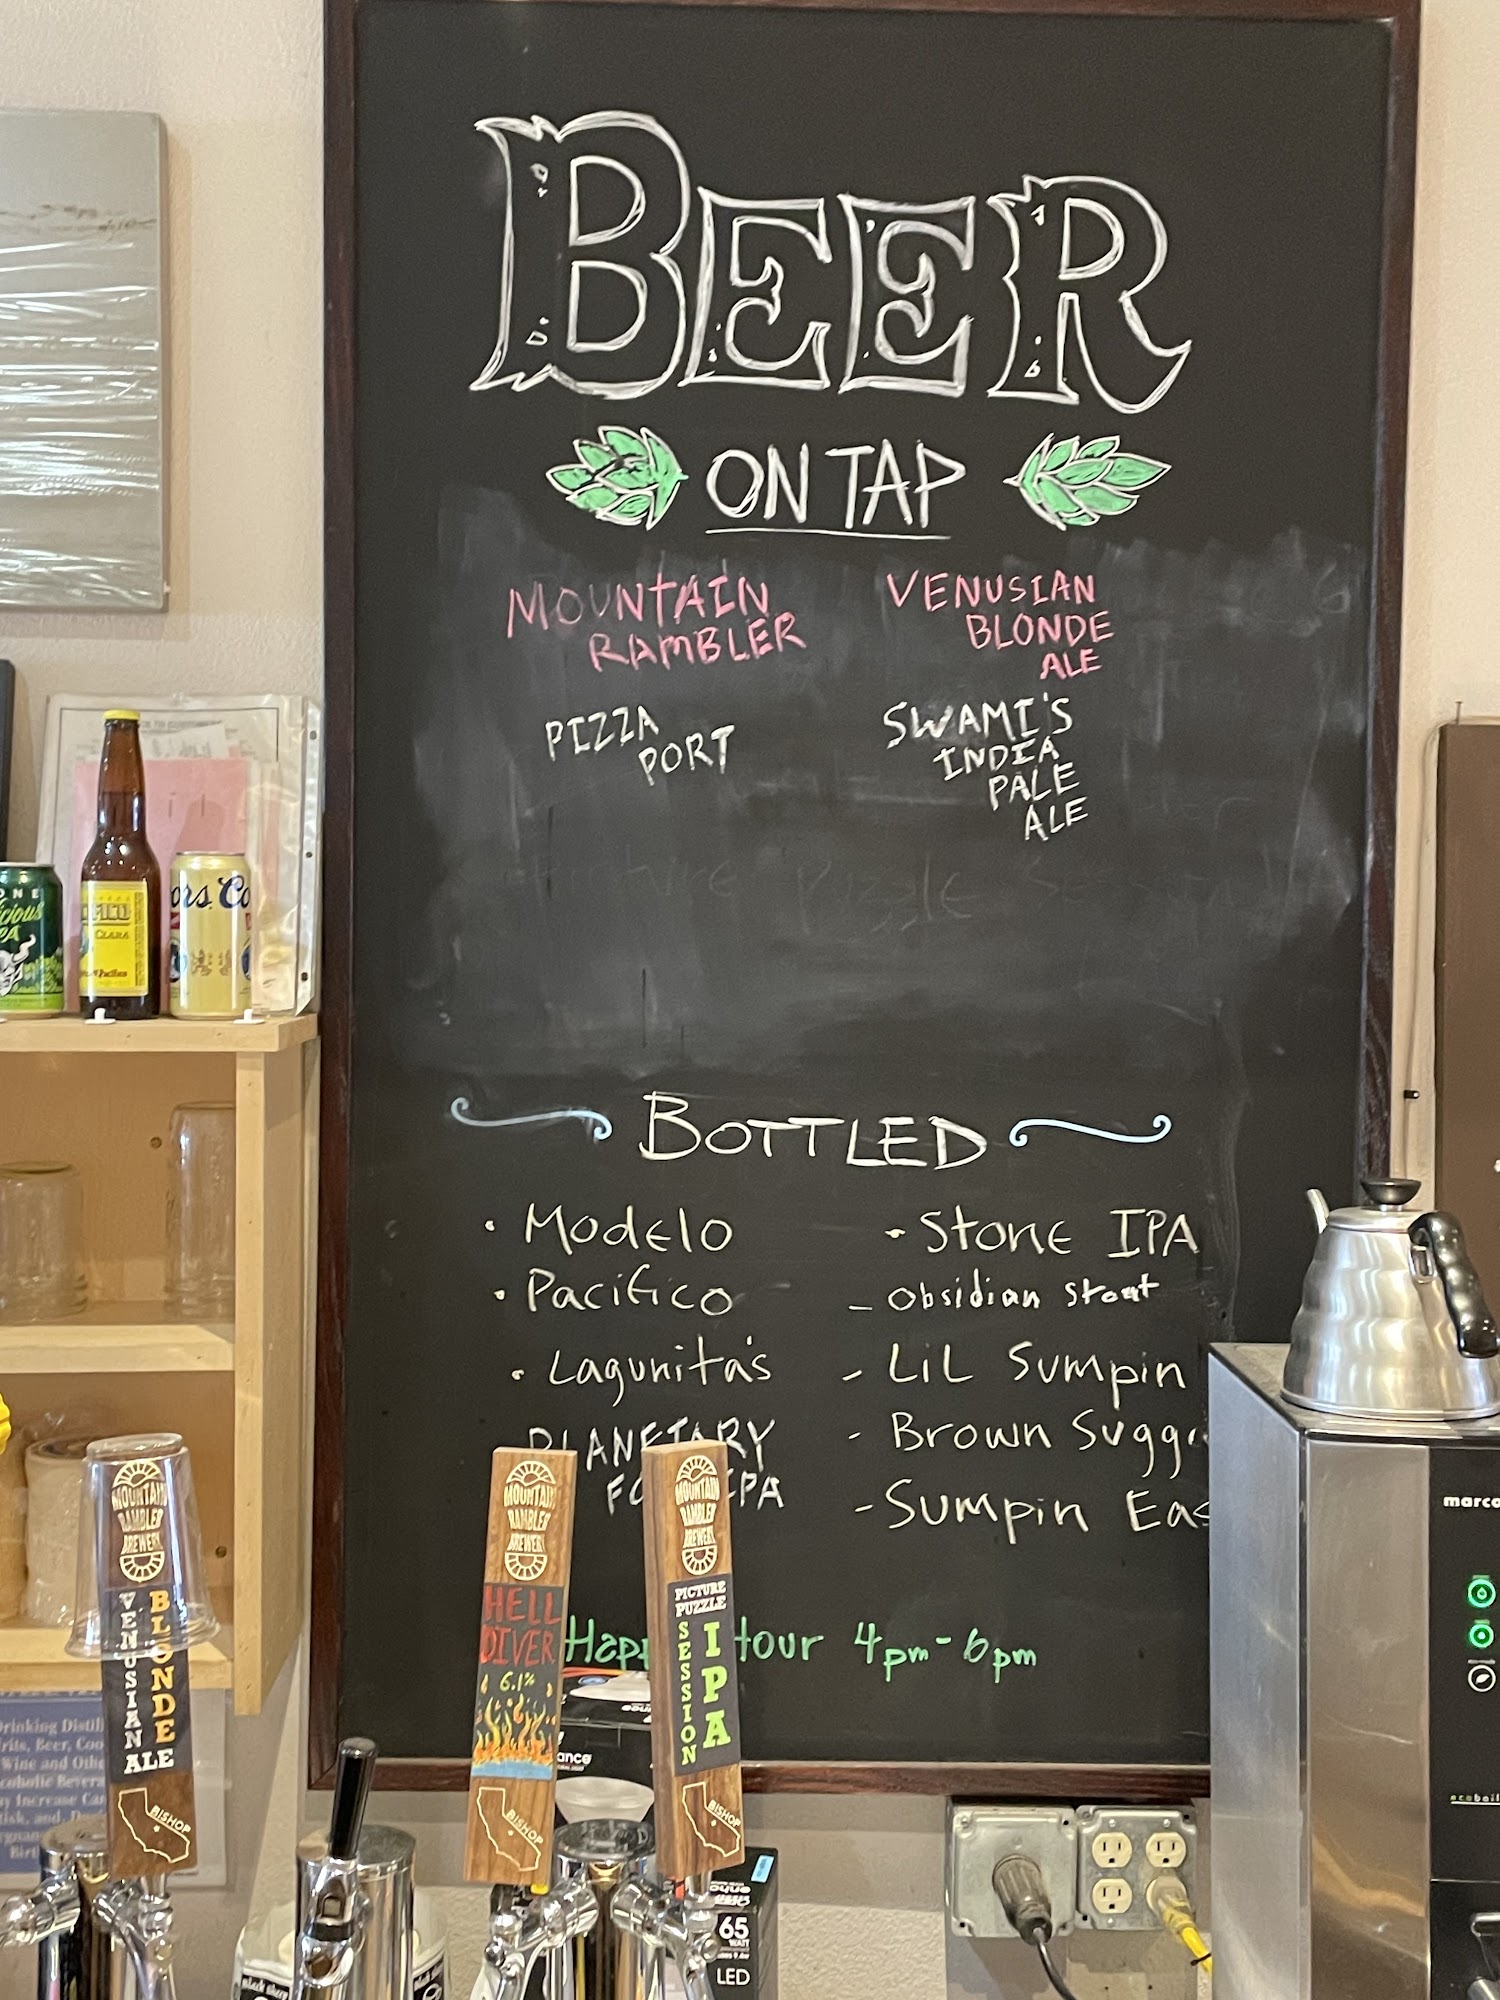 BEER
ON TAP
MOUNTAIN
RAMBLER
VENUSIAN
BLONDE
ALE
PIZZA
PORT
SWAMI'S
INDIA
PALE
ALE
BOTTLED
· Modelo
· Pacifico
· Lagunita's
PLANETARY
IPA
- Stone IPA
- Obsidian Stout
- LiL Sumpin
- Brown Sugg
- Sumpin Eas
Hour 4pm-6pm
MOUNTAIN
RAMBLER
BREWERY
VENUSIAN
BLONDE
ALE
BISHOP
MOUNTAIN
RAMBLER
BREWERY
HELL
DIVER
6.1%
BISHOP
MOUNTAIN
RAMBLER
BREWERY
PICTURE
PUZZLE
SESSION
IPA
BISHOP
ONE
icious
PA
CLARA
ors Co
Drinking Distil
rits, Beer, Coo
Wine and Othe
coholic Bevera
ay Increase Can
isk, and, D
Birt
ance
65
WATT
LED
marco
ecoboil